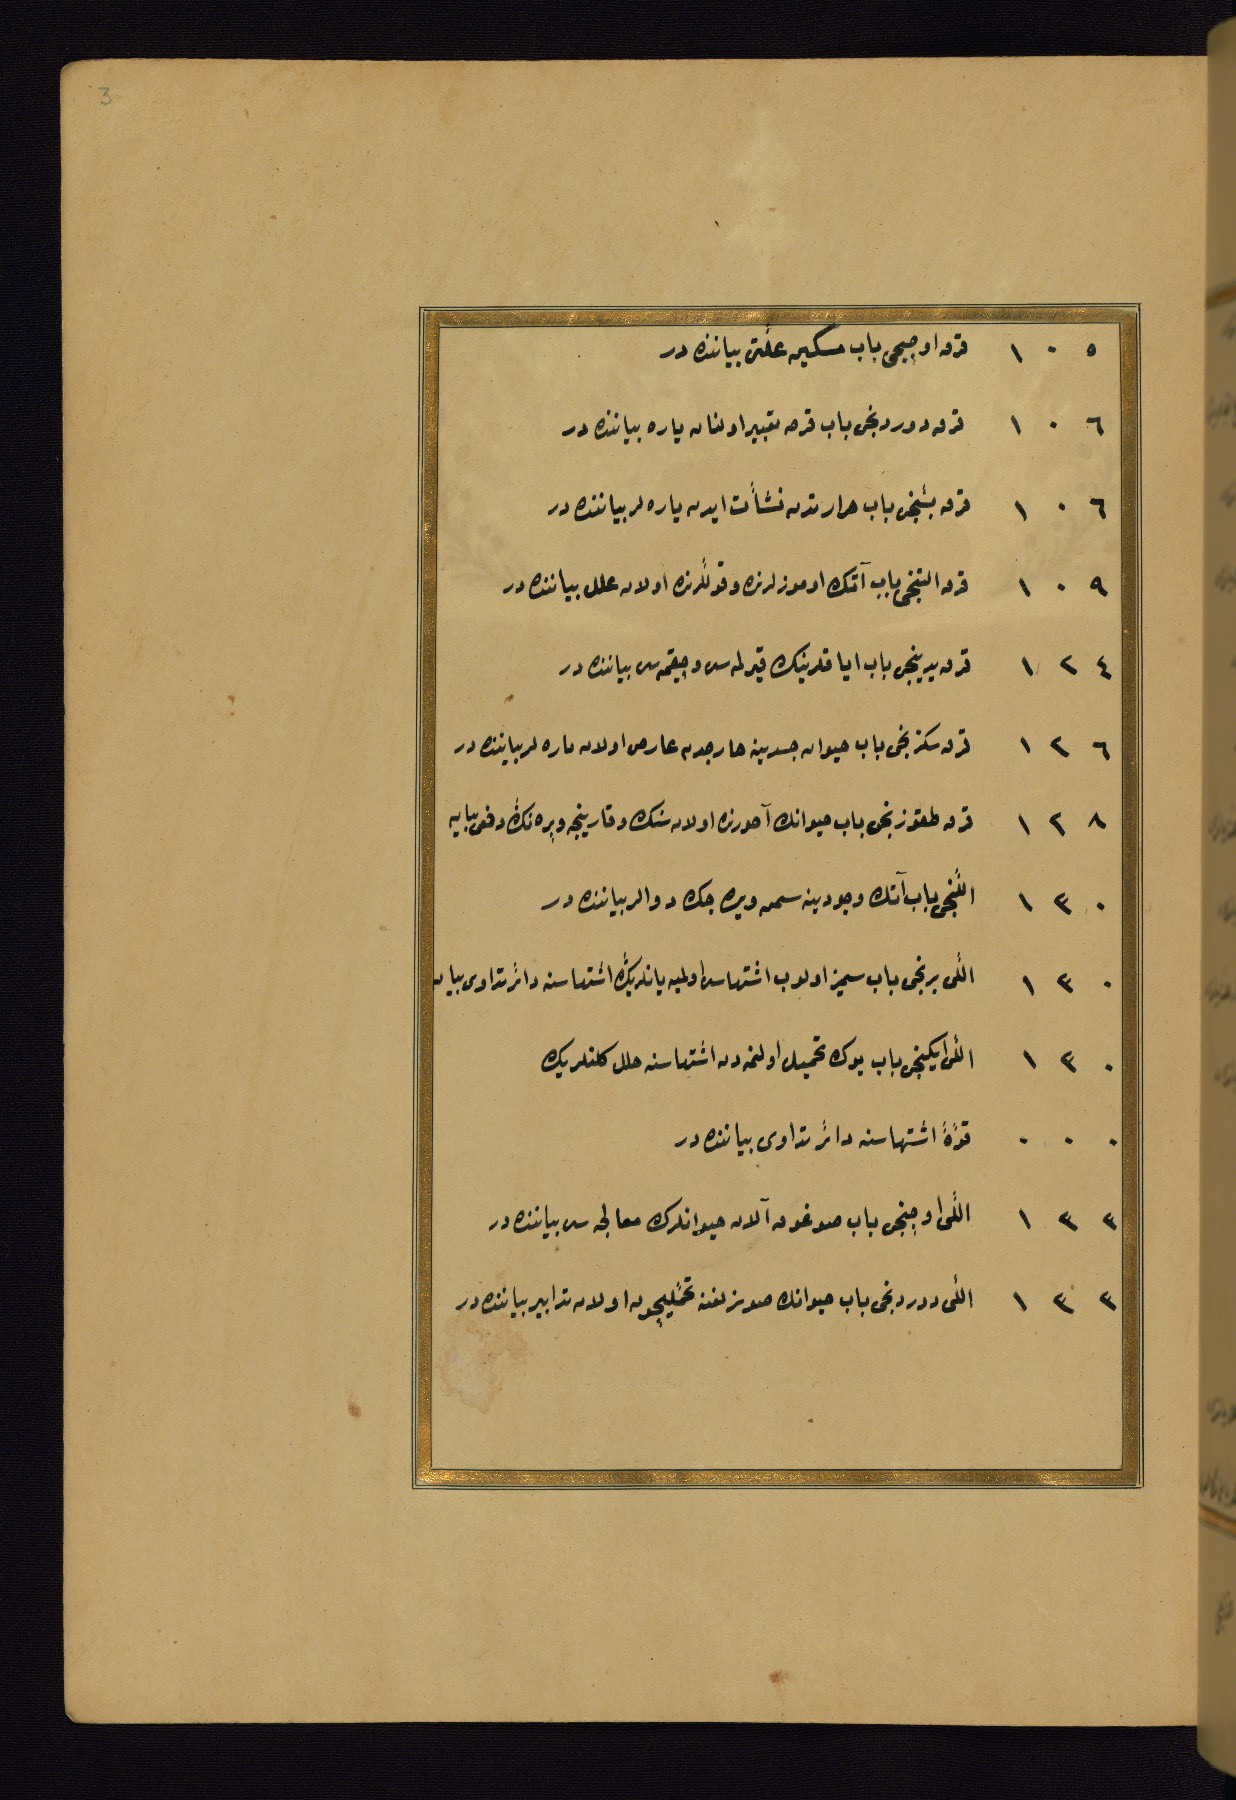 3
١٠٥ قرق اوچنجی باب مسكین علّتی بیاننده در
١٠٦ قرق دوردنجی باب قرحه تعبیر اولنان یاره بیاننده در
١٠٦ قرق بشنجی باب حرارتدن نشأت ایدن یاره لر بیاننده در
١٠٩ قرق التنجی باب آتك اوموزلرنده و قوللرنده اولان علل بیاننده در
١٢٤ قرق یدینجی باب ایاقلرینك قیرلمه سی و چیقمه سی بیاننده در
١٢٦ قرق سكزنجی باب حیوان جسدینه خارجدن عارض اولان یاره لر بیاننده در
١٢٨ قرق طقوزنجی باب حیوانك آخورنده اولان سنك و قارینجه و پره نك دفعی بیاننه
١٣٠ اللنجی باب آتك وجودینه سمن ویره جك دوالر بیاننده در
١٣٠ اللی برنجی باب سمیز اولوب اشتهاسی اولمیانلریڭ اشتهاسنه دائر تداوی بیان
١٣٠ اللی ایكینجی باب یوك تحمیل اولنمه دن اشتهاسنه خلل كلنلریك
٠٠٠ قوّۀ اشتهاسنه دائر تداوی بیاننده در
١٣٣ اللی اوچنجی باب صوغوق آلان حیوانلرك معالجه سی بیاننده در
١٣٣ اللی دوردنجی باب حیوانك صویزلغنه تحمّلیچون اولان تدابیر بیاننده در